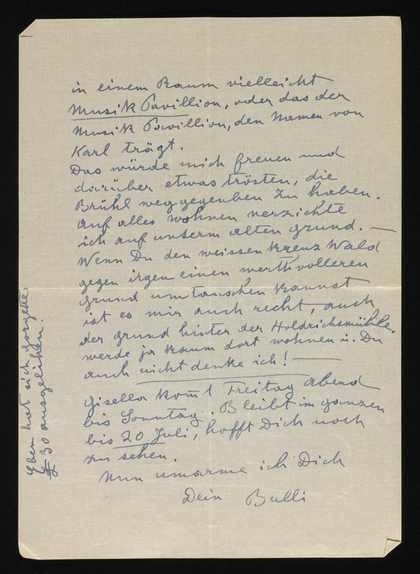 in einem Raum vielleicht
Musik Pavillion, oder das der
Musik Pavillion, den Namen von
Karl trägt.
Das würde mich freuen und
darüber etwas trösten, die
Brühl weggegeben zu haben.
Auf alles wohnen verzichte
ich auf unserm alten Grund. —
Wenn Du den weissen Kreuz Wald
gegen irgen einen werthvolleren
Grund umtauschen kannst
ist es mir auch recht, auch
der Grund hinter der Holdrichsmühle.
werde ja kaum dort wohnen u. Du
auch nicht denke ich! —
Gisella kom̄t Freitag Abend
bis Sonntag. Bleibt im ganzen
bis 20 Juli, hofft Dich noch
zu sehen.
Nun umarme ich Dich
Dein Bulli
Eben hat sich
30 ausgeliehen.